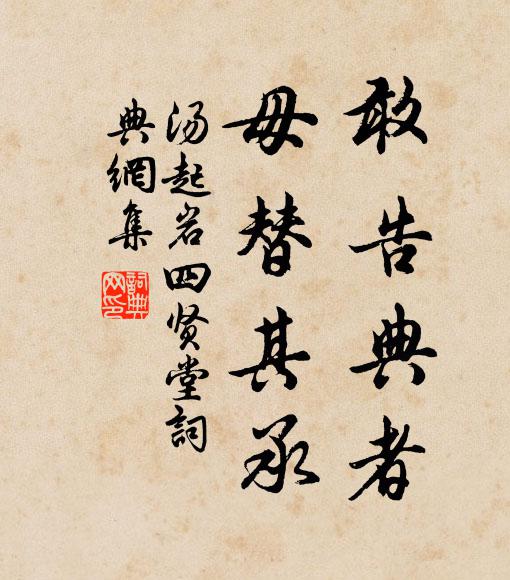 敢告典者
毋替其承
汤起岩四贤堂詞
典網集
詞典网印